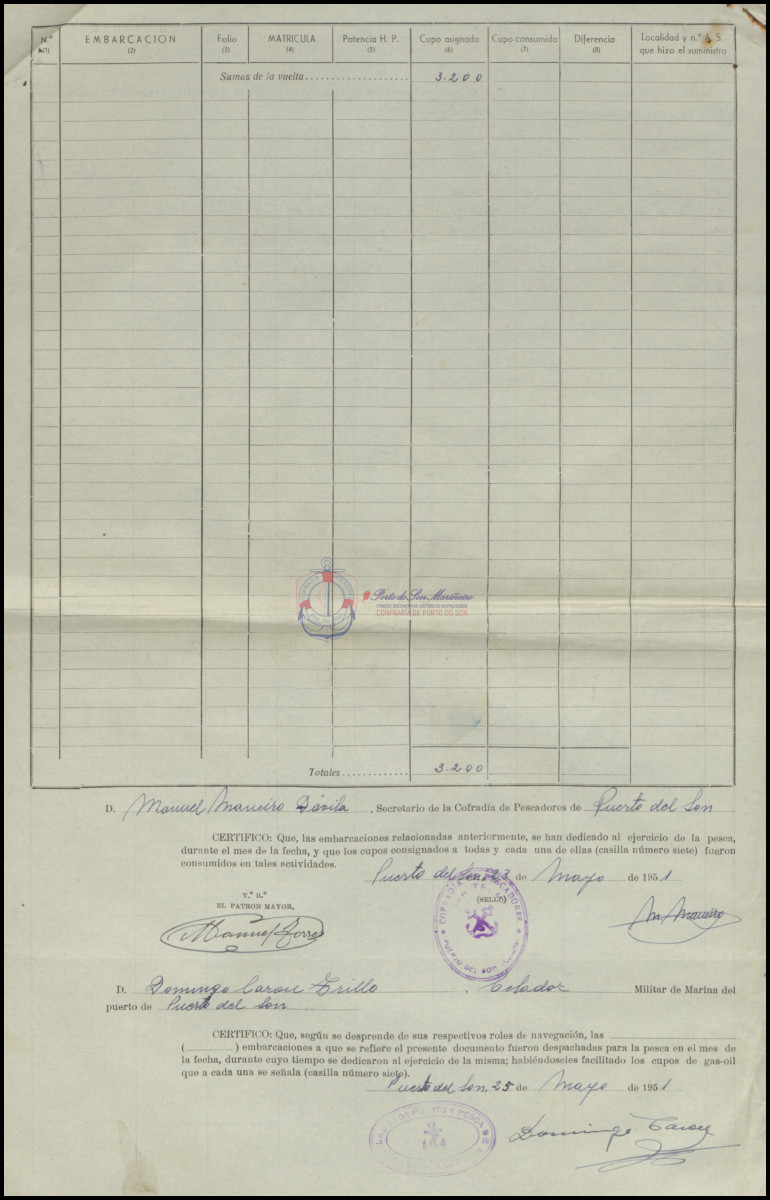 N.º EMBARCACION Folio MATRICULA Potencia H. P. Cupo asignado Cupo consumido Diferencia Localidad y n.º A. S.
(1) (2) (3) (4) (5) (6) (7) (8) que hizo el suministro
Sumas de la vuelta................... 3.200
Porto do Son Mariñeiro
CONFRARÍA DE PORTO DO SON
Totales............ 3.200
D. Manuel Maneiro Dávila, Secretario de la Cofradía de Pescadores de Puerto del Son
CERTIFICO: Que, las embarcaciones relacionadas anteriormente, se han dedicado al ejercicio de la pesca,
durante el mes de la fecha, y que los cupos consignados a todas y cada una de ellas (casilla número siete) fueron
consumidos en tales actividades.
Puerto del Son, 23 de Mayo de 1951
V.º B.º
EL PATRON MAYOR,
(SELLO)
COFRADIA DE PESCADORES
PUERTO DEL SON
Manuel Torre
M. Maneiro
D. Domingo Carou Trillo, Celador Militar de Marina del
puerto de Puerto del Son
CERTIFICO: Que, según se desprende de sus respectivos roles de navegación, las
( ) embarcaciones a que se refiere el presente documento fueron despachadas para la pesca en el mes de
la fecha, durante cuyo tiempo se dedicaron al ejercicio de la misma; habiéndoseles facilitado los cupos de gas-oil
que a cada una se señala (casilla número siete).
Puerto del Son, 25 de Mayo de 1951
Domingo Carou